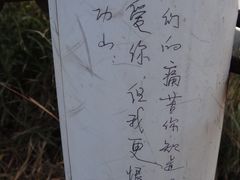 的痛苦你知道
爱你,但我更恨
功山: